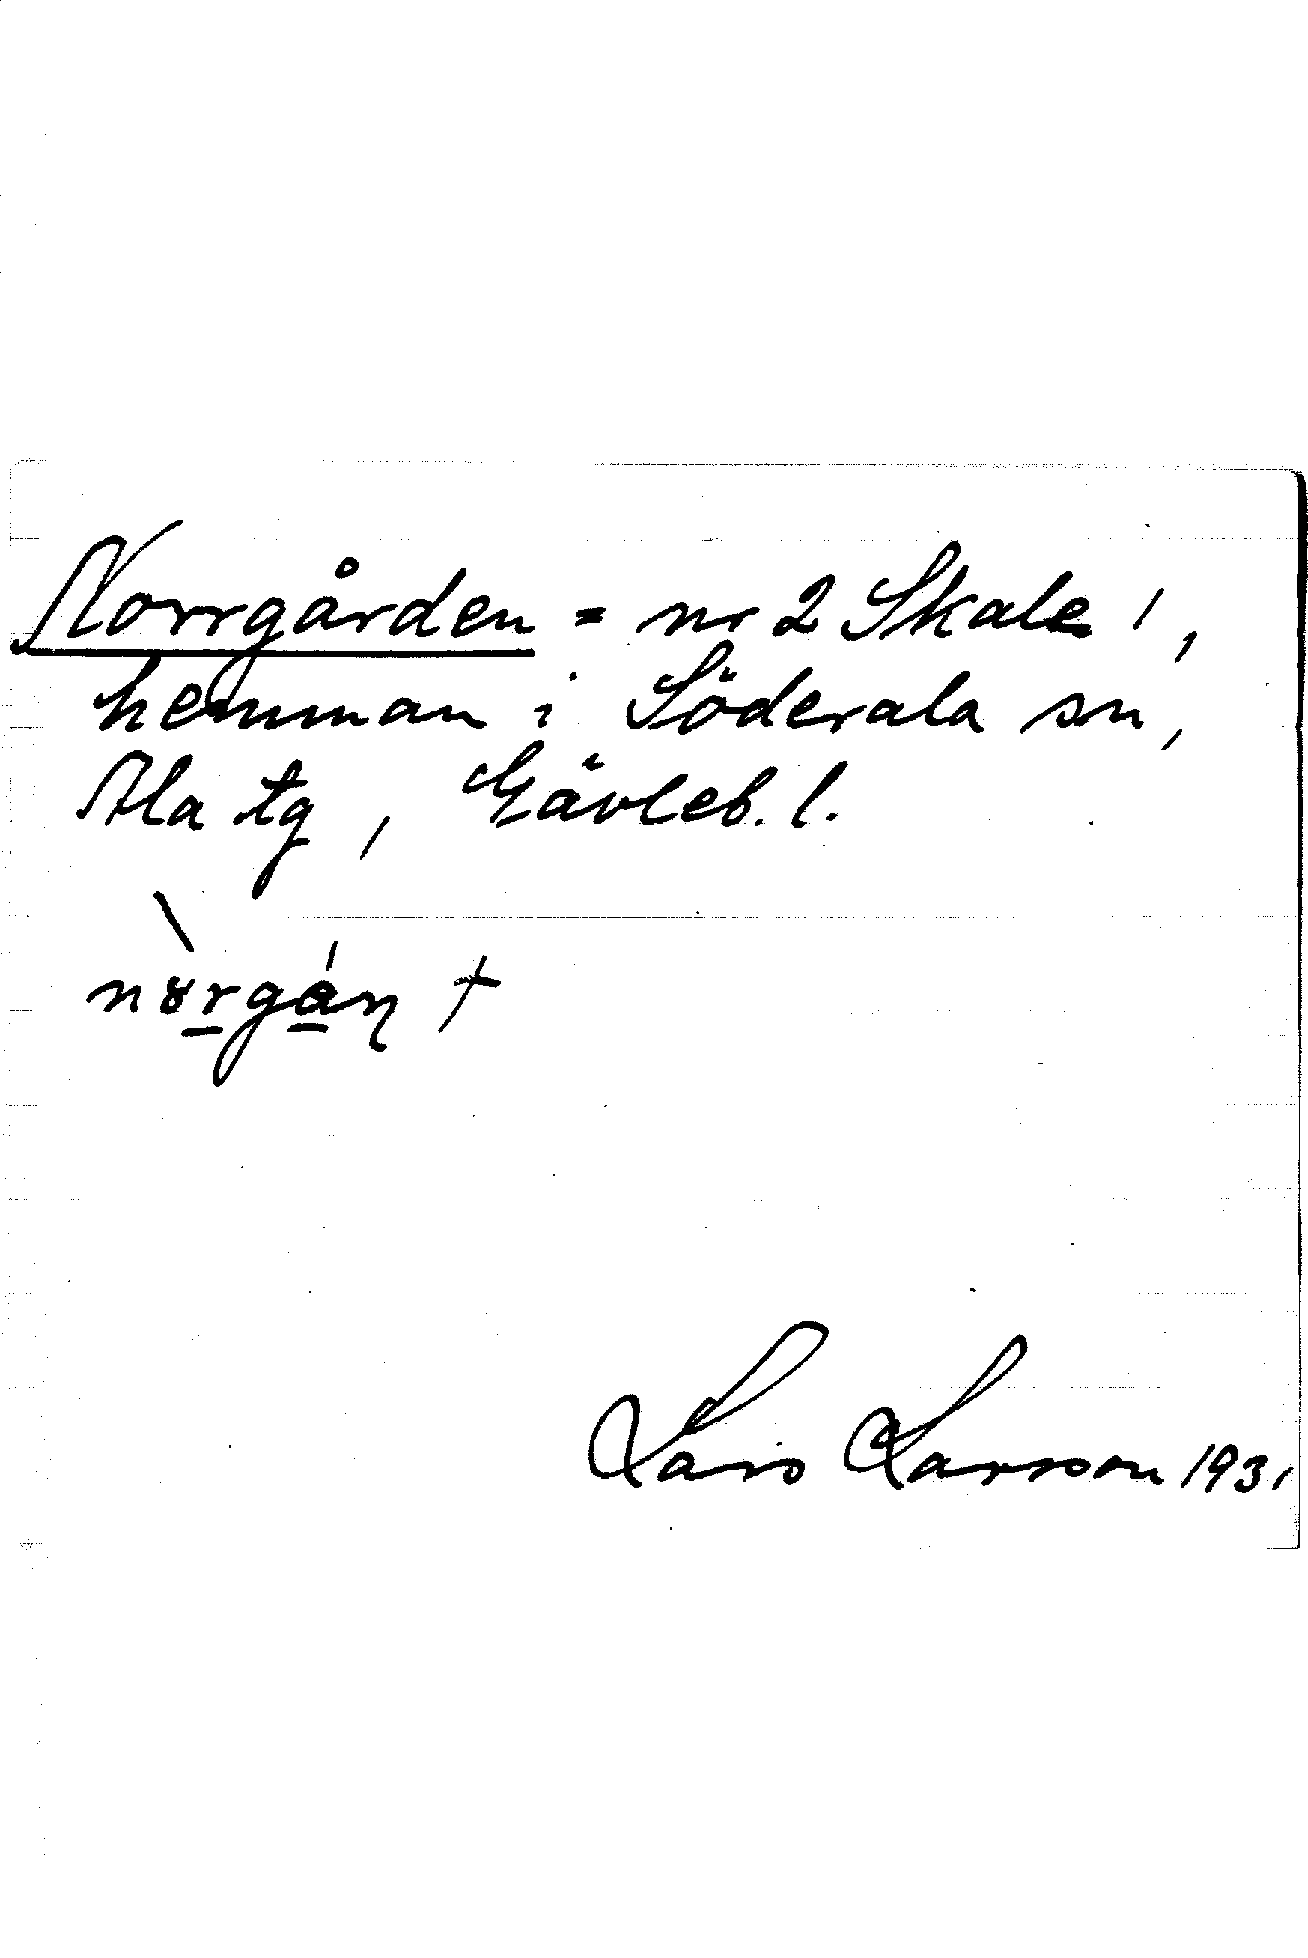 Norrgården = nr 2 Skale 1,
hemman i Söderala sn,
Ala tg, Gävleb. l.
Lars Larsson 1931